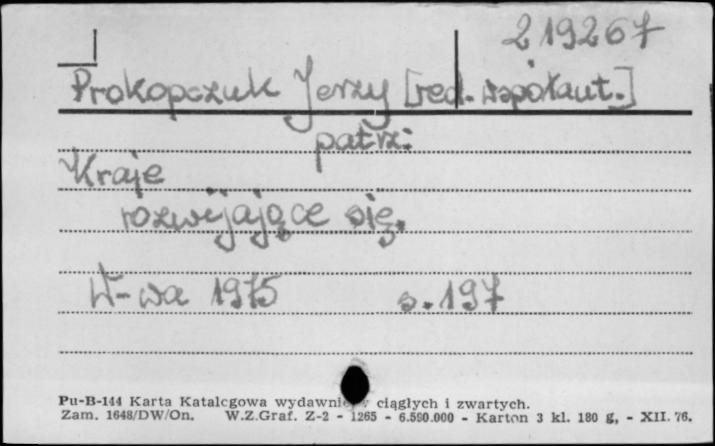 219267
Prokopczuk Jerzy [red. współaut.]
patrz:
Kraje
rozwijające się.
W-wa 1975 s. 197
Pu-B-144 Karta Katalogowa wydawnictw ciągłych i zwartych.
Zam. 1648/DW/On. W.Z.Graf. Z-2 - 1265 - 6.500.000 - Karton 3 kl. 180 g, - XII. 76.